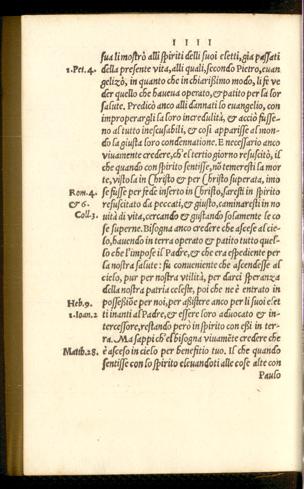 I I I I
sua li mostrò alli spiriti delli suoi eletti, gia passati
1. Pet. 4. della presente vita, alli quali, secondo Pietro, euan
gelizò, in quanto che in chiarißimo modo, li fè ve
der quello che haueua operato, & patito per la lor
salute. Predicò anco alli dannati lo euangelio, con
improperargli la loro incredulità, & acciò fusse=
no al tutto inescusabili, & così apparisse al mon=
do la giusta loro condennatione. E necessario anco
viuamente credere, ch'el tertio giorno resuscitò, il
che quando con spirito sentisse, nō temeresti la mor
te, visto la in Christo & per Christo superata, imo
Rom. 4. se fusse per fede inserto in Christo, saresti in spirito
& 6. resuscitato da peccati, & giusto, caminaresti in no
Coll. 3. uità di vita, cercando & gustando solamente le co
se superne. Bisogna anco credere che ascese al cie=
lo, hauendo in terra operato & patito tutto quel=
lo che l'impose il Padre, & che era espediente per
la nostra salute: fù conueniente che ascendesse al
cielo, pur per nostra vtilità, per darci speranza
della nostra patria celeste, poi che ne è entrato in
Heb. 9. possessiōe per noi, per aßistere anco per li suoi elet
1. Ioan. 2 ti inanti al Padre, & essere loro aduocato & in=
tercessore, restando però in spirito con eßi in ter=
ra. Ma sappi ch'el bisogna viuamēte credere che
Matth. 28. è asceso in cielo per benefitio tuo. Il che quando
sentisse con lo spirito eleuandoti alle cose alte con
Paulo